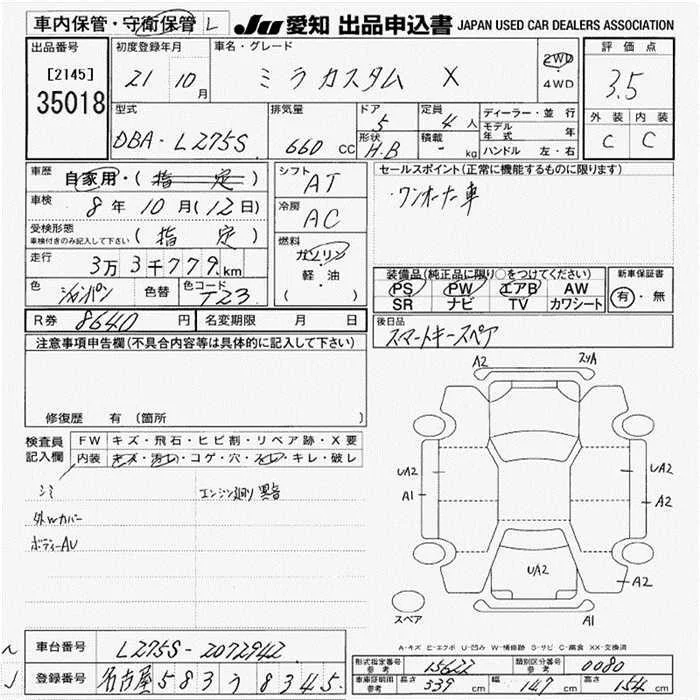 車内保管・守衛保管 L
JU 愛知 出品申込書 JAPAN USED CAR DEALERS ASSOCIATION
出品番号
[2145]
35018
初度登録年月
21 10月
車名・グレード
ミラ カスタム X
2WD
・
4WD
評価点
3.5
外装 内装
C C
型式
DBA-L275S
排気量
660 CC
ドア
5
形状
H.B
定員
4人
積載
- kg
ディーラー・並行
モデル年式 年
ハンドル 左・右
車歴
自家用・(指定)
車検
8年10月(12日)
受検形態
車検付きのみ記入して下さい
(指定)
走行
3万3千779km
色
シャンパン
色替
色コード
T23
シフト
AT
冷房
AC
燃料
ガソリン
軽・油
( )
セールスポイント(正常に機能するものに限ります)
・ワンオーナー車
装備品(純正品に限り○をつけてください)
PS PW エアB AW
SR ナビ TV カワシート
新車保証書
有・無
R券 8640円
名変期限 月 日
後日品
スマートキースペア
注意事項申告欄(不具合内容等は具体的に記入して下さい)
修復歴 有(箇所 )
検査員
記入欄
FW キズ・飛石・ヒビ割・リペア跡・X要
内装 キズ・汚レ・コゲ・穴・スレ・キレ・破レ
シミ
エンジン廻り異音
外Wカバー
ボディーAU
A2
スリA
UA2
A1
UA2
A2
UA2
A2
A1
スペア
A・キズ E・エクボ U・凹み W・補修跡 S・サビ C・腐食 XX・交換済
車台番号
L275S-2072942
登録番号
名古屋 583 う 8345
形式指定番号
参考
15622
類別区分番号
参考
0080
車庫証明用
参考
長さ 339cm
幅 147cm
高さ 154cm